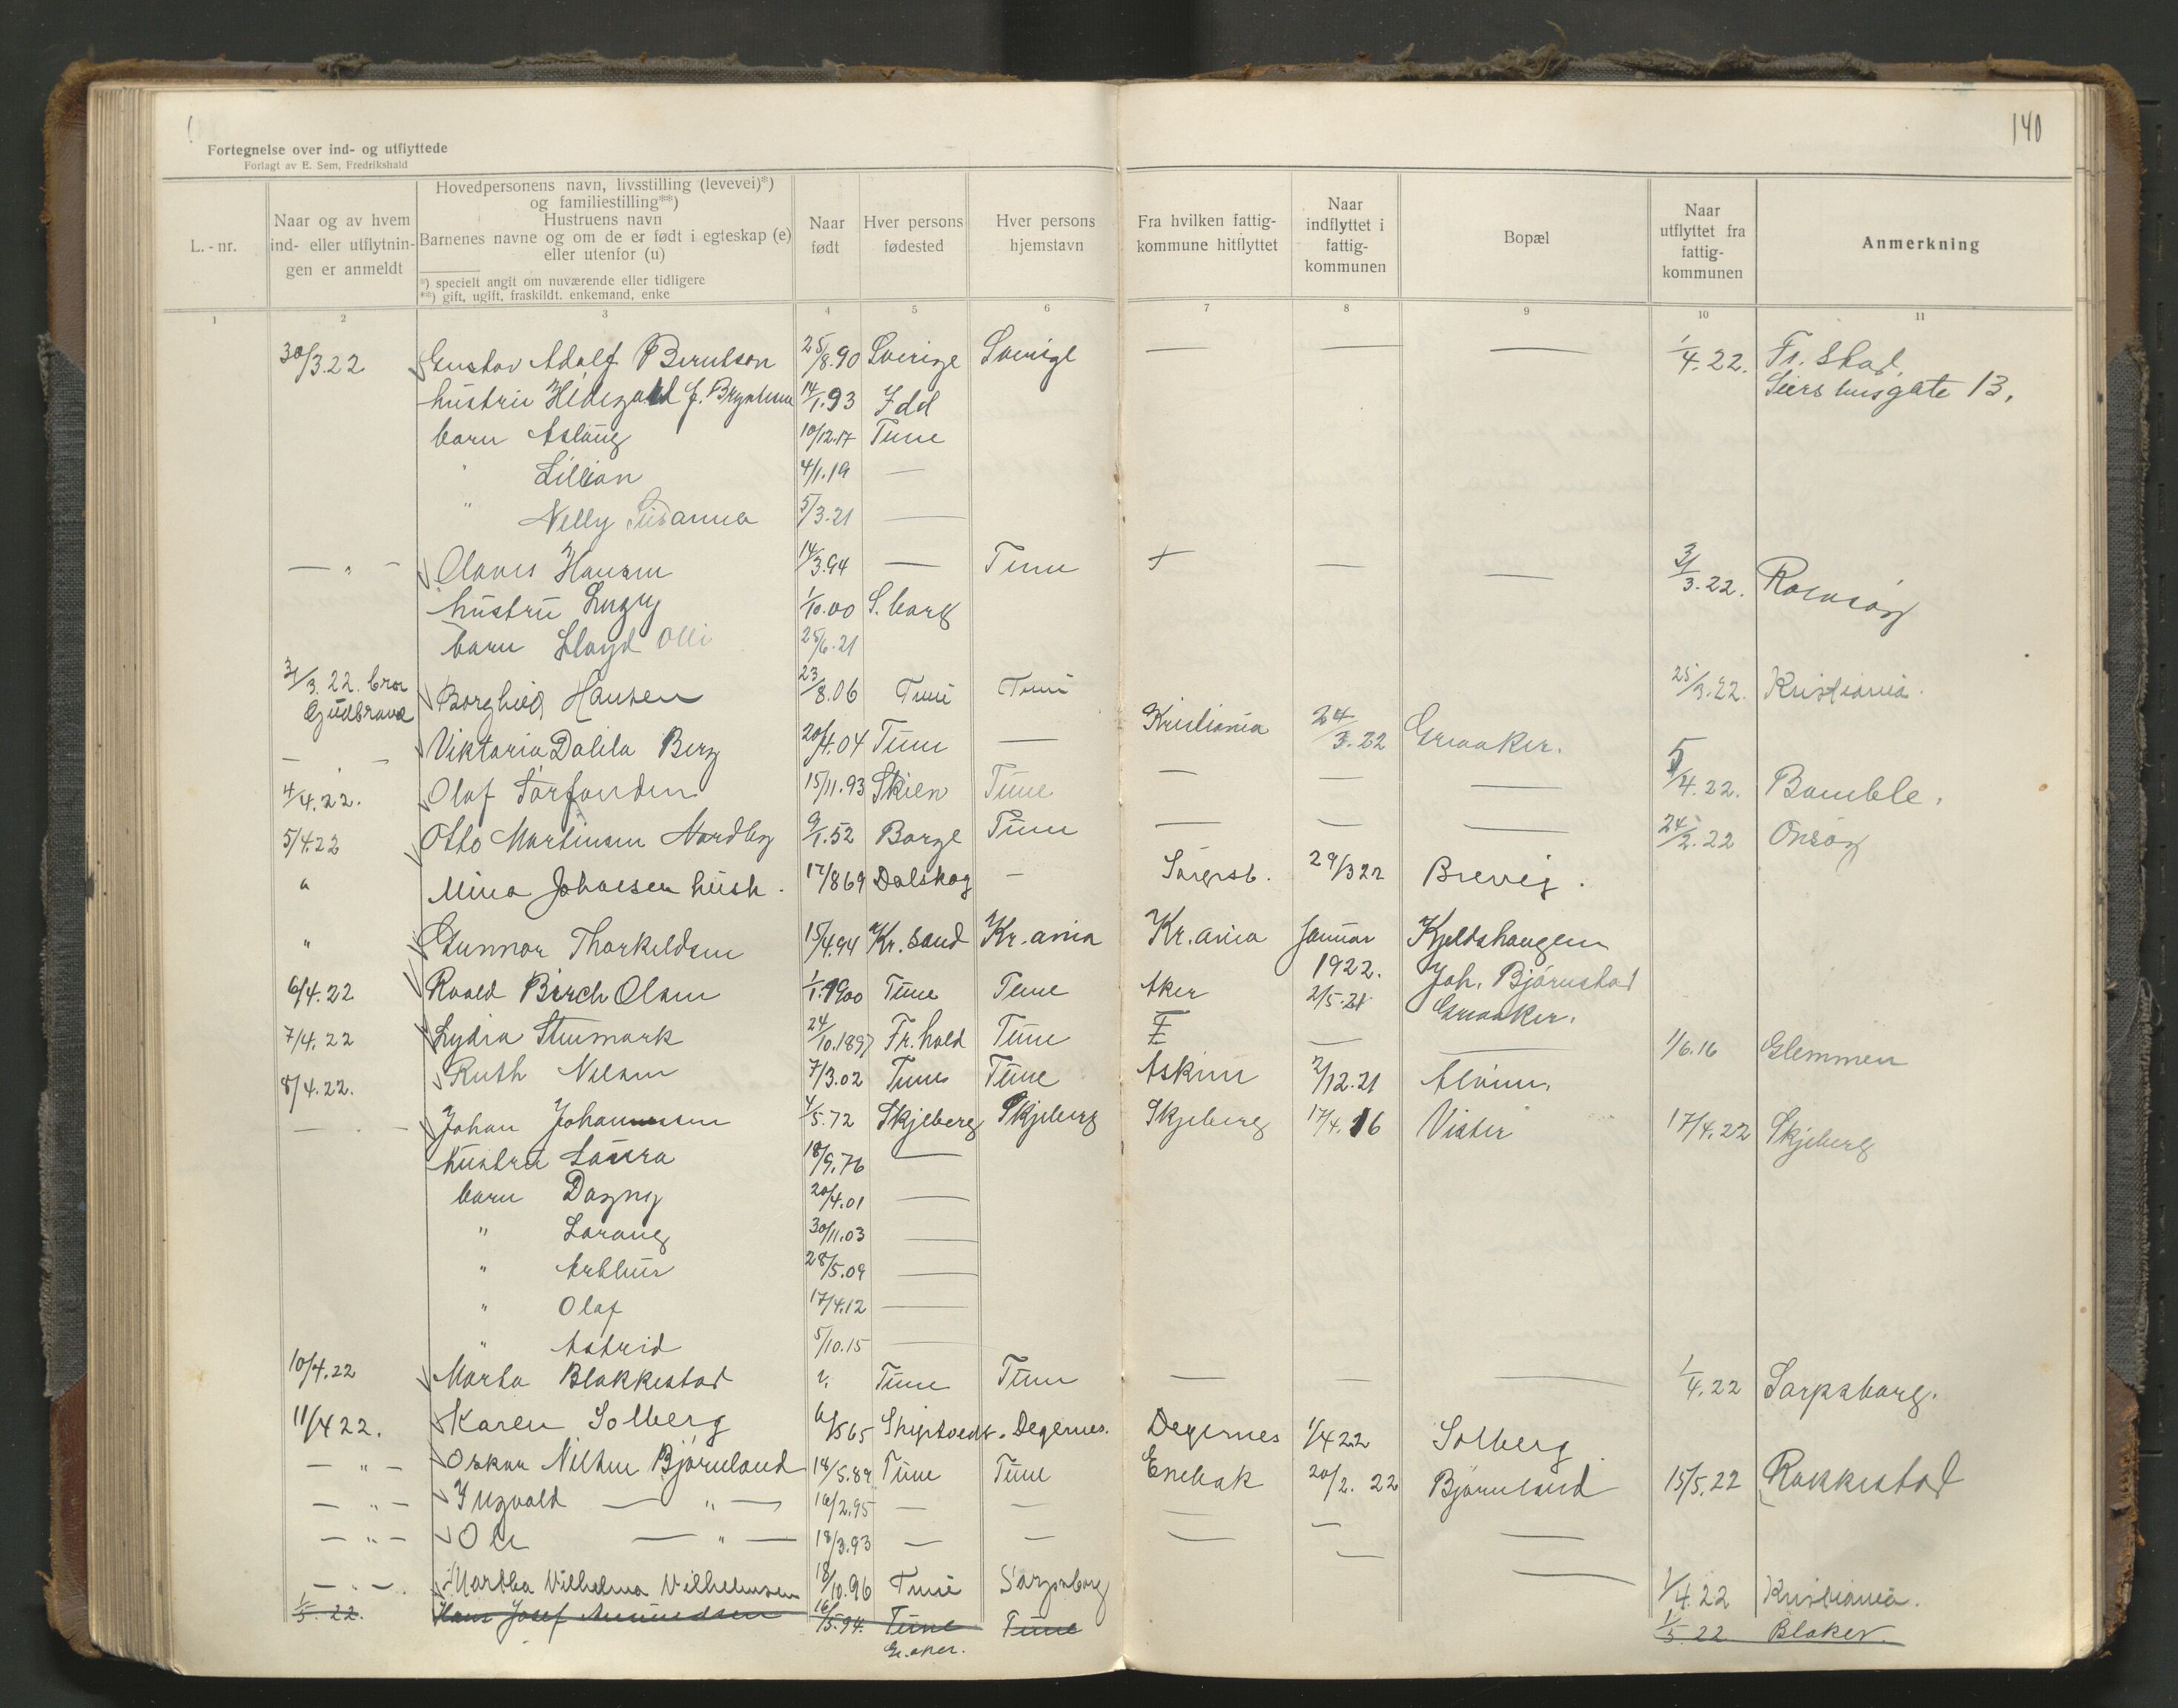 140
Fortegnelse over ind- og utflyttede
Forlagt av E. Sem, Fredrikshald
L.-nr.
Naar og av hvem ind- eller utflytnin-gen er anmeldt
Hovedpersonens navn, livsstilling (levevei)*) og familiestilling**)
Hustruens navn
Barnenes navne og om de er født i egteskap (e) eller utenfor (u)
*) specielt angit om nuværende eller tidligere
**) gift, ugift, fraskildt, enkemand, enke
Naar født
Hver persons fødested
Hver persons hjemstavn
Fra hvilken fattig-kommune hitflyttet
Naar indflyttet i fattig-kommunen
Bopæl
Naar utflyttet fra fattig-kommunen
Anmerkning
1 2 3 4 5 6 7 8 9 10 11
30/3.22 Gustav Adolf Berntson 25/8.90 Sverige Sverige — — — 1/4.22. Fr. Stad
hustru f. 14/1.93 Idd gate 13.
barn Aslaug 10/12.17 Tune
" Lillian 4/1.19 —
" Nelly Susanna 5/3.21 —
— " — Olaves Hansen 14/3.94 — Tune — — 3/3.22. Rolvsøy
hustru 1/10.00 S.borg
barn Lloyd Olli 25/6.21
31/3.22. bror Gudbrand Borghild Hansen 23/8.06 Tune Tune 25/3.22. Kristiania.
— . — Viktoria Dalila Berg 20/4.04 Tune — Kristiania 24/3.22 Greaaker.
4/4.22. Olaf 15/11.93 Skien Tune — — — 5/4.22. Bamble.
5/4.22 Otto Martinsen Nordby 9/1.52 Borge Tune — — — 24/2.22 Onsøy
" Mina Johansen hush. 17/869 Dalskog — Sarpsb. 29/322 Brevig.
" Gunnar Thorkildsen 15/4.94 Kr.sand Kr.ania Kr.ania Januar 1922. Kjeldshaugen
6/4.22 Roald Birch Olsen 1/1.1900 Tune Tune Aker 2/5.21 Joh. Bjørnstad Greaaker.
7/4.22 Lydia Stenmark 24/10.1897 Fr.hald Tune — — 1/6.16 Glemmen
8/4.22. Ruth Nilsen 7/3.02 Tune Tune Askim 2/12.21 Alvim.
— . — Johan Johannessen 4/5.72 Skjeberg Skjeberg Skjeberg 17/4.16 Vister 17/4.22 Skjeberg
hustru Laura 18/9.76 —
barn Dagny 20/4.01 —
" Lorang 30/11.03 —
" Arthur 28/5.09 —
" Olaf 17/4.12 —
" Astrid 5/10.15 —
10/4.22 Marta Blakkestad ?. Tune Tune — — — 1/4.22 Sarpsborg.
11/422. Karen Solberg 6/565 Skiptvedt. Degernes. Degernes 1/422 Solberg
— " — Oskar Nilsen Bjørnland 18/5.89 Tune Tune Enebak 20/2.22 Bjørnland 15/5.22 Rakkestad
— " — Ingvald — " — 16/2.95 — — — —
— " — Ole — " — 18/3.93 — — — — —
— . — Martha Vilhelma Vilhelmsen 18/10.96 Tune Sarpsborg — 1/4.22 Kristiania.
1/5.22. Hans Josef Amundsen 16/5.94. Tune Tune 1/5.22 Blaker.
Gr.aker.